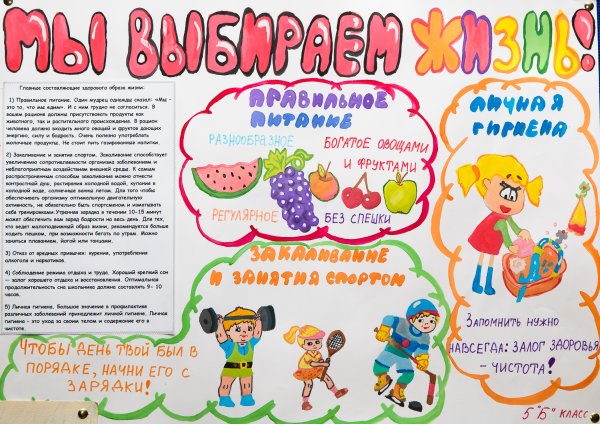 МЫ ВЫБИРАЕМ ЖИЗНЬ!
Главные составляющие здорового образа жизни:
1) Правильное питание. Один мудрец однажды сказал: «Мы -
это то, что мы едим». И с ним трудно не согласиться. В
вашем рационе должны присутствовать продукты как
животного, так и растительного происхождения. В рацион
человека должно входить много овощей и фруктов дающих
энергию, силу и бодрость. Очень полезно употреблять
молочные продукты. Не стоит пить газированные напитки.
2) Закаливание и занятия спортом. Закаливание способствует
увеличению сопротивляемости организма заболеваниям и
неблагоприятным воздействиям внешней среды. К самым
распространенным способам закаливания можно отнести
контрастный душ, растирания холодной водой, купание в
холодной воде, солнечные ванны летом. Для того чтобы
обеспечивать организму оптимальную двигательную
активность, не обязательно быть спортсменом и изматывать
себя тренировками.Утренняя зарядка в течении 10-15 минут
может обеспечить вам заряд бодрости на весь день. Для тех,
кто ведет малоподвижный образ жизни, рекомендуется больше
ходить пешком, при возможности бегать по утрам. Можно
заняться плаванием, йогой или танцами.
3) Отказ от вредных привычек: курения, употребления
алкоголя и наркотиков.
4) Соблюдение режима отдыха и труда. Хороший крепкий сон
– залог хорошего отдыха и восстановления. Оптимальная
продолжительность сна школьника должно составлять 9- 10
часов.
5) Личная гигиена. Большое значение в профилактике
различных заболеваний принадлежит личной гигиене. Личная
гигиена - это уход за своим телом и содержание его в
чистоте.
ПРАВИЛЬНОЕ
ПИТАНИЕ
РАЗНООБРАЗНОЕ
БОГАТОЕ ОВОЩАМИ
И ФРУКТАМИ
РЕГУЛЯРНОЕ
БЕЗ СПЕШКИ
ЛИЧНАЯ
ГИГИЕНА
ЗАПОМНИТЬ НУЖНО
НАВСЕГДА: ЗАЛОГ ЗДОРОВЬЯ
- ЧИСТОТА!
ЗАКАЛИВАНИЕ
И ЗАНЯТИЯ СПОРТОМ
ЧТОБЫ ДЕНЬ ТВОЙ БЫЛ В
ПОРЯДКЕ, НАЧНИ ЕГО С
ЗАРЯДКИ!
5 "Б" КЛАСС